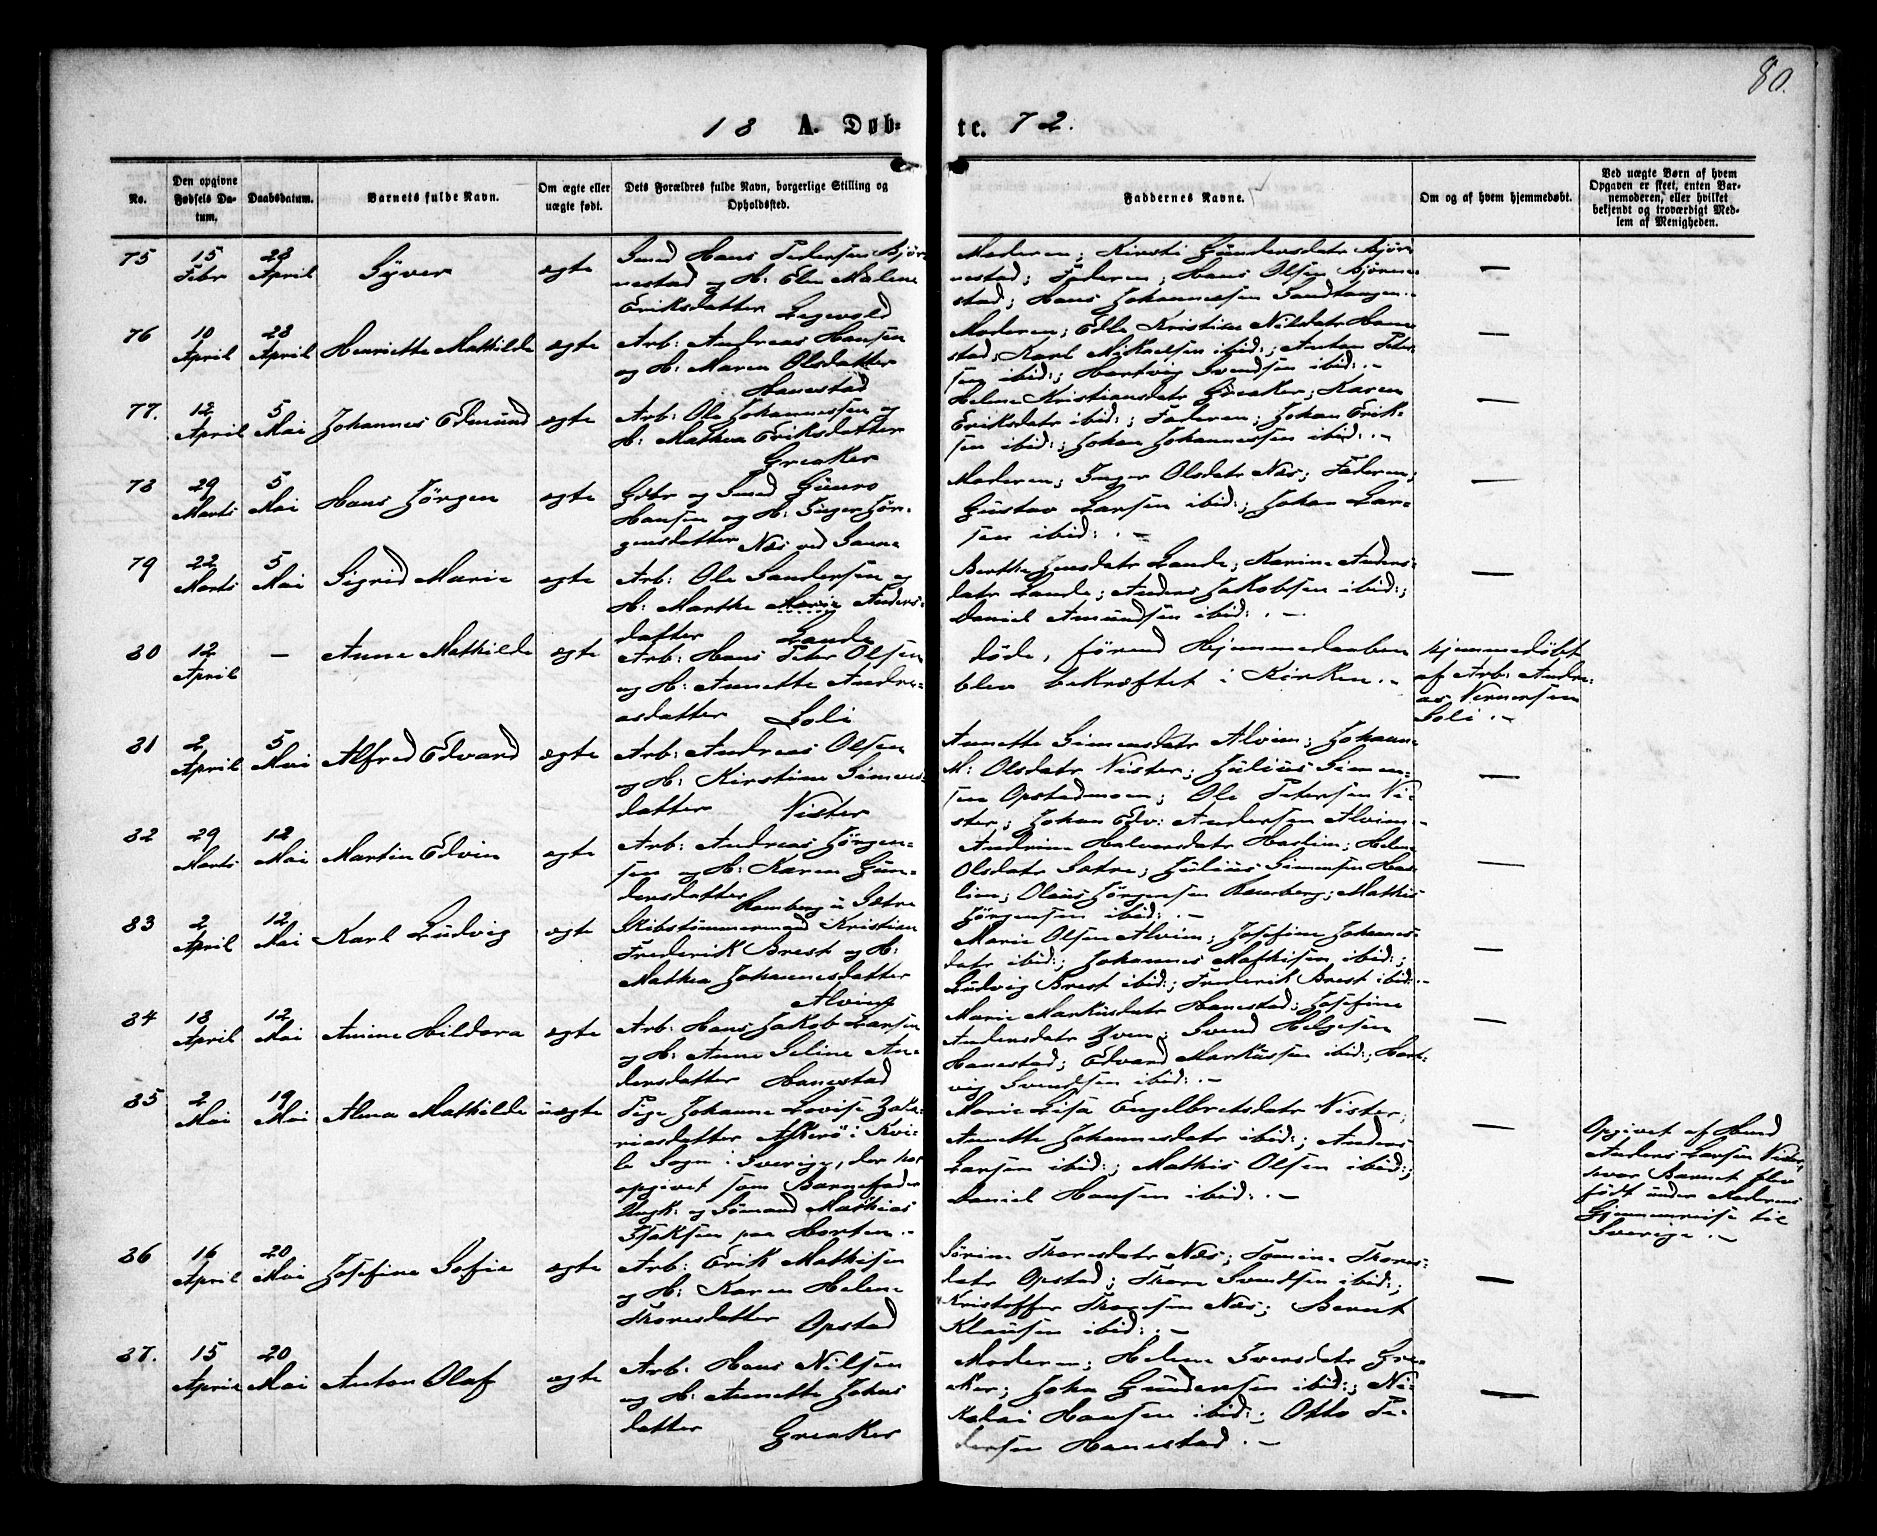 80.
18 A. Døb- te. 72.
No.
Den opgivne Fødsels Datum.
Daabsdatum.
Barnets fulde Navn.
Om ægte eller uægte født.
Dets Forældres fulde Navn, borgerlige Stilling og Opholdssted.
Faddernes Navne.
Om og af hvem hjemmedøbt.
Ved uægte Børn af hvem Opgaven er skeet, enten Barnemoderen, eller hvilket bekjendt og troværdigt Medlem af Menigheden.
75
15 Febr
28 April
Syver
ægte
Smed Hans Pedersen Bjør-
nestad og H: Elen Malene
Eriksdatter
Moderen; Kirsti Gundersdatr Bjør-
nestad; Faderen; Hans Olsen Bjørne-
stad; Hans Johannessen Sandtangen.
—
76
10 April
28 April
Henriette Mathilde
ægte
Arb: Andreas Hansen
og H: Maren Olsdatter
Hanestad
Moderen; Edle Kristine Nilsdatr Hane-
stad; Karl Mikaelsen ibid:; Anton Peter-
sen ibid:; Hartvig Svendsen ibid:. —
—
77.
12 April
5 Mai
Johannes Edmund
ægte
Arb: Ole Johannessen og
H: Mathea Eriksdatter
Greaker
Helene Kristiansdatr Greaker; Karen
Eriksdatr ibid:; Faderen; Johan Erik-
sen ibid:; Johan Johannessen ibid:. —
—
78
29 Marts
5 Mai
Hans Jørgen
ægte
Gbr og Smed Guuro
Hansen og H: Inger Jør-
gensdatter Næs ved Sanne
Moderen; Inger Olsdatr Næs; Faderen;
Gustav Larsen ibid:; Johan Lar-
sen ibid:. —
—
79
22 Marts
5 Mai
Sigrid Marie
ægte
Arb: Ole Sandersen og
H: Marthe Marie Anders-
datter Lande
Berthe Jensdatr Lande; Karine Anders-
datr Lande; Anders Jakobsen ibid:;
Daniel Amundsen ibid:. —
—
80
12 April
—
Anne Mathilde
ægte
Arb: Hans Peter Olsen
og H: Annette Andre-
asdatter Soli
døde, førend Hjemmedaaben
blev bekræftet i Kirken. —
Hjemmedøbt
af Arb: Andre-
as Vernersen
Soli. —
81
2 April
5 Mai
Alfred Edvard
ægte
Arb: Andreas Olsen
og H: Kirstine Simens-
datter Nister
Annette Simensdatr Alvim; Johann-
M: Olsdatr Nister; Julius Simen-
sen Opstadmoen; Ole Petersen Ni-
ster; Johan Edv: Andersen Alvim —
—
82
29 Marts
12 Mai
Martin Edvin
ægte
Arb: Andreas Jørgen-
sen og H: Karen Gun-
dersdatter Ramberg u: Sætre
Andrine Halvorsdatr Haslim; Helene
Olsdatr Satre; Julius Simensen Has-
lim; Olaus Jørgensen Ramberg; Mathis
Jørgensen ibid:. —
—
83
2 April
12 Mai
Karl Ludvig
ægte
Skibstømmermand Kristian
Frederik Brest og H:
Mathea Johannesdatter
Alvim
Marie Olsen Alvim; Josefine Johannes-
datr ibid:; Johannes Mathisen ibid:;
Ludvig Brest ibid:; Frederik Brest ibid:. —
—
84
18 April
12 Mai
Anine Hildora
ægte
Arb: Hans Jakob Larsen
og H: Anne Seline An-
dersdatter Hanestad
Marie Markusdatr Hanestad; Josefine
Andersdatr Yven; Svend Helgesen
Hanestad; Edvard Markussen ibid:; Hart-
vig Svendsen ibid:. —
—
85
2 Mai
19 Mai
Alma Mathilde
uægte
Pige Johanne Lovise Zaka-
riasdatter Askerö i Kvi-
le Sogn i Sverige, der har
opgivet som Barnefader
Ungk: og Sømand Mathias
Isaksen paa Horten. —
Marie Lisa Engelbretsdatr Nister;
Annette Johannesdatr ibid:; Anders
Larsen ibid:; Mathis Olsen ibid:;
Daniel Hansen ibid:. —
—
Opgivet af Husmd
Anders Larsen Nister,
hvor Barnet blev
født under Moderens
Gjennemreise til
Sverige. —
86
16 April
20 Mai
Josefine Sofie
ægte
Arb: Erik Mathisen
og H: Karen Helene
Thoresdatter Opstad
Sørine Thoresdatr Næs; Tomine Thores-
datr Opstad; Thore Svendsen ibid:;
Kristoffer Thoresen Næs; Bernt
Klausen ibid:. —
—
87.
15 April
20 Mai
Anton Olaf
ægte
Arb: Hans Nilsen
og H: Annette Johns-
datter Greaker
Moderen; Helene Iversdatr Grea-
ker; John Gundersen ibid:; Ni-
kolai Hansen ibid:; Otto Pe-
dersen Hanestad. —
—